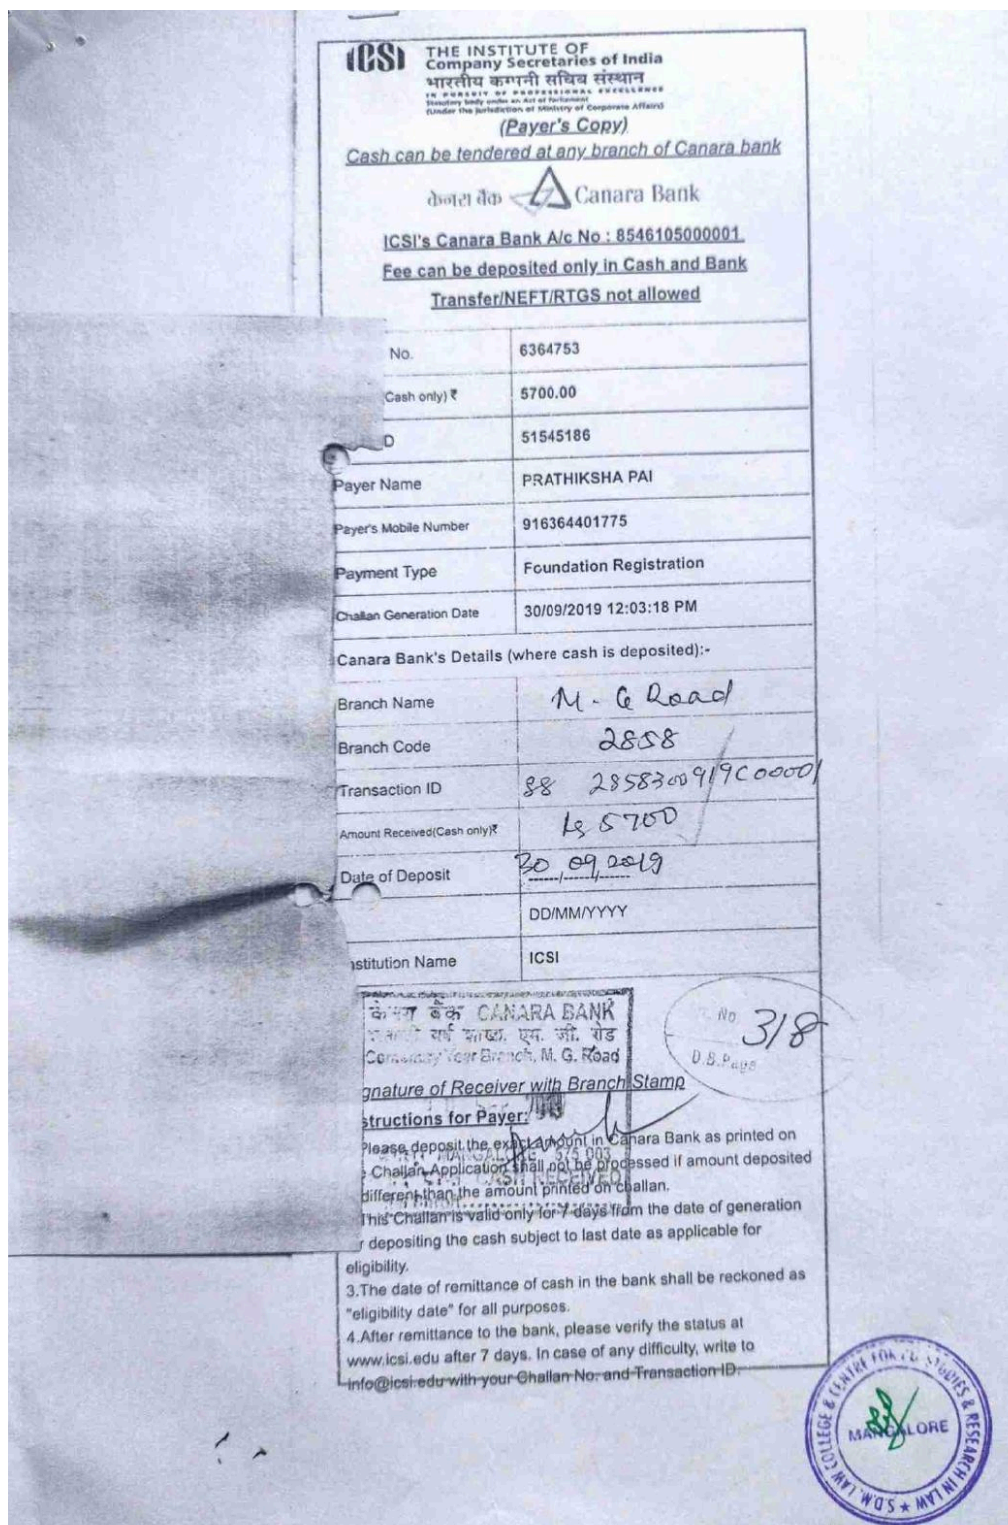 ICSI THE INSTITUTE OF
Company Secretaries of India
भारतीय कम्पनी सचिव संस्थान
IN PURSUIT OF PROFESSIONAL EXCELLENCE
Statutory body under an Act of Parliament
(Under the jurisdiction of Ministry of Corporate Affairs)
(Payer's Copy)
Cash can be tendered at any branch of Canara bank
केनरा बैंक Canara Bank
ICSI's Canara Bank A/c No : 8546105000001.
Fee can be deposited only in Cash and Bank
Transfer/NEFT/RTGS not allowed
No. 6364753
Cash only) ₹ 5700.00
D 51545186
Payer Name PRATHIKSHA PAI
Payer's Mobile Number 916364401775
Payment Type Foundation Registration
Challan Generation Date 30/09/2019 12:03:18 PM
Canara Bank's Details (where cash is deposited):-
Branch Name M. G Road
Branch Code 2858
Transaction ID 2858300919C00001
Amount Received(Cash only)₹ 5700
Date of Deposit 30/09/2019
DD/MM/YYYY
nstitution Name ICSI
बैंक CANARA BANK
वर्ष शाखा, एम. जी. रोड
Centenary Year Branch, M. G. Road
No. 318
D.B.Page
gnature of Receiver with Branch Stamp
structions for Payer:
Please deposit the exact amount in Canara Bank as printed on
Challan Application shall not be processed if amount deposited
MANGALORE 575 003
CASH RECEIVED
different than the amount printed on challan.
This Challan is valid only for 7 days from the date of generation
r depositing the cash subject to last date as applicable for
eligibility.
3.The date of remittance of cash in the bank shall be reckoned as
"eligibility date" for all purposes.
4.After remittance to the bank, please verify the status at
www.icsi.edu after 7 days. In case of any difficulty, write to
info@icsi.edu with your Challan No. and Transaction ID.
S.D.M. LAW COLLEGE & CENTRE FOR P.G. STUDIES & RESEARCH IN LAW ★
MANGALORE